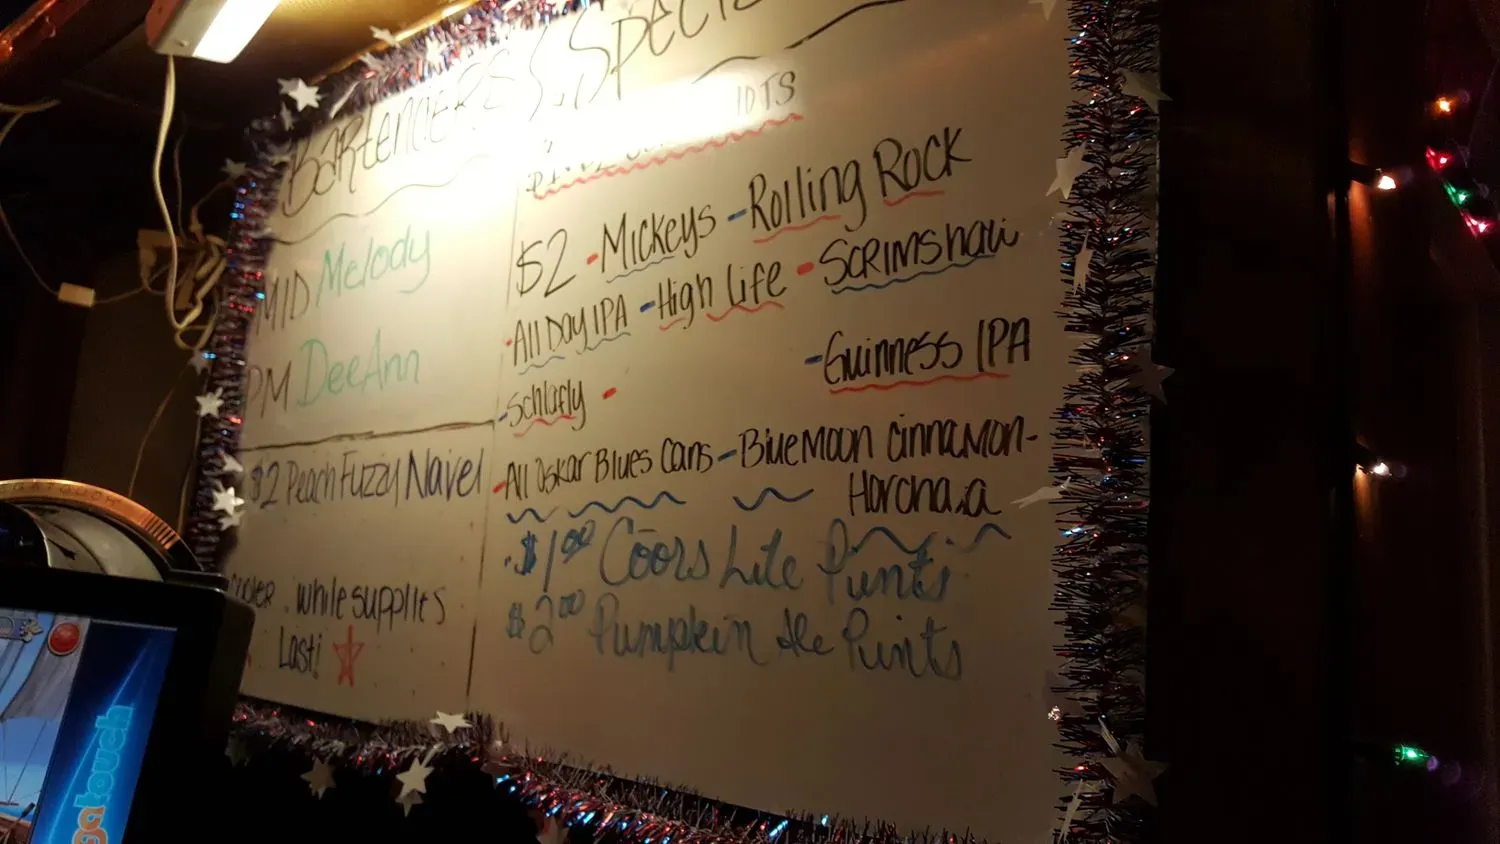 Bartenders Specia
MID Melody
PM DeeAnn
$2 Peach Fuzzy Navel
while supplies
Last!
$2 - Mickeys - Rolling Rock
- All Day IPA - High Life - SCRIMSHAW
- Guinness IPA
- Schlafly -
- All Oskar Blues Cans - Blue Moon Cinnamon-
Horchata
$1.00 Coors Lite Punts
$2.00 Pumpkin Ale Punts